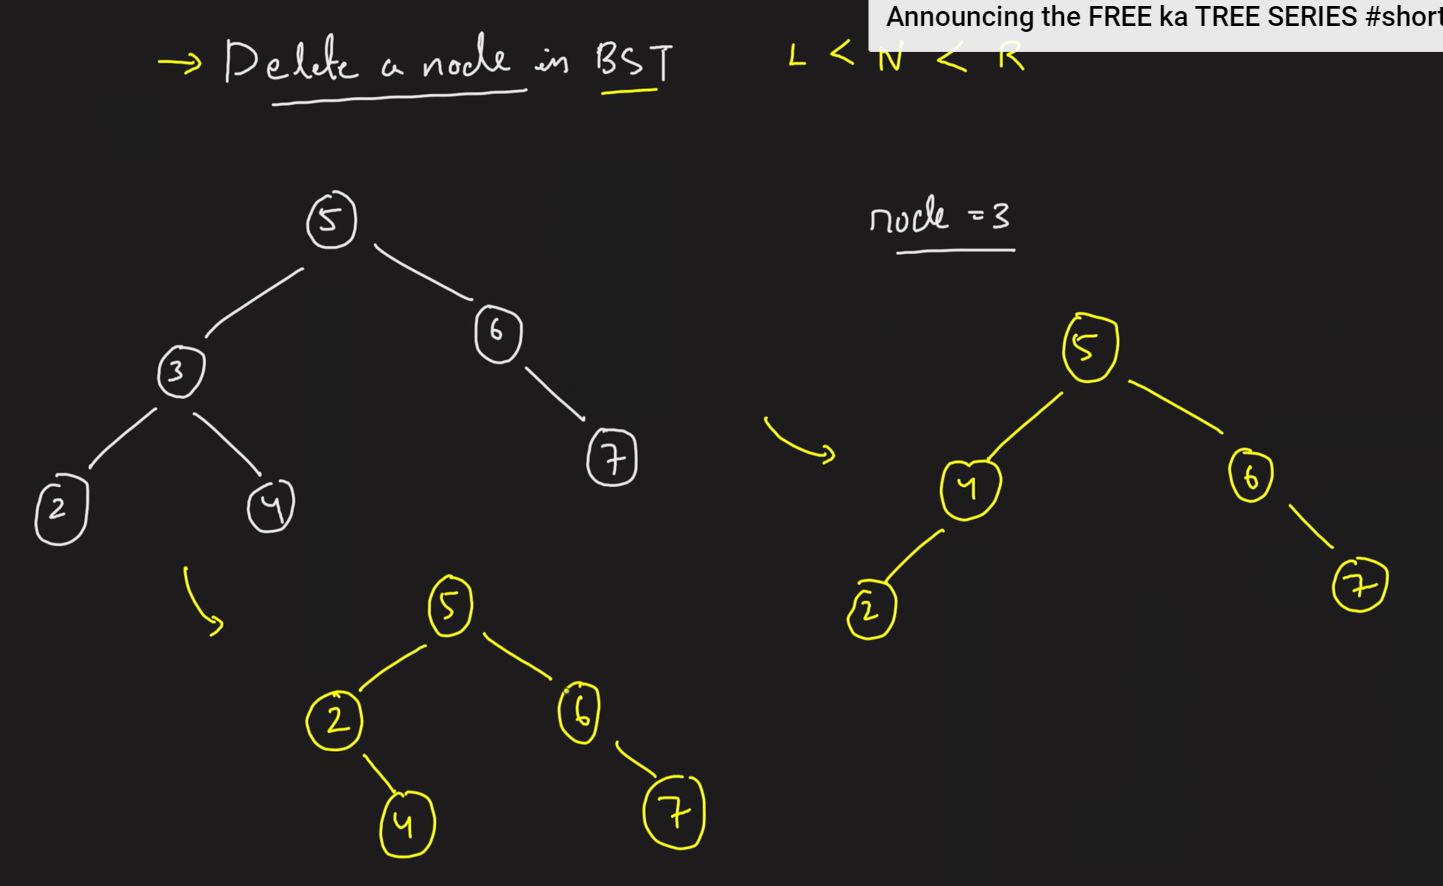 Announcing the FREE ka TREE SERIES #short
→ Delete a node in BST
L < N < R
node = 3
5
3
6
2
4
7
5
4
6
2
7
5
2
6
4
7